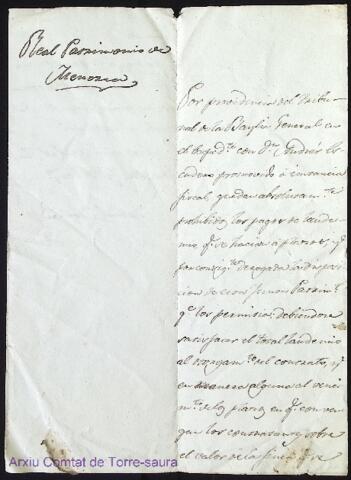 Real Patrimonio de
Menorca
Por providencia del Tribu-
nal de la Baylia General en
el Exped.te con D.n Andrés
promovido á instancia
fiscal, quedan absolutam.te
prohibidos los pagos de laude-
mio q.e se hacian á plazos, y
por consig.te derogada la dispo-
sicion de
q.e los permitia: debiendose
satisfacer el total laudemio
al otorgam.to del contrato, y
en manera alguna al venci-
m.to de los plazos en q.e conven-
gan los contratantes sobre
el valor de la finca
Arxiu Comtat de Torre-saura